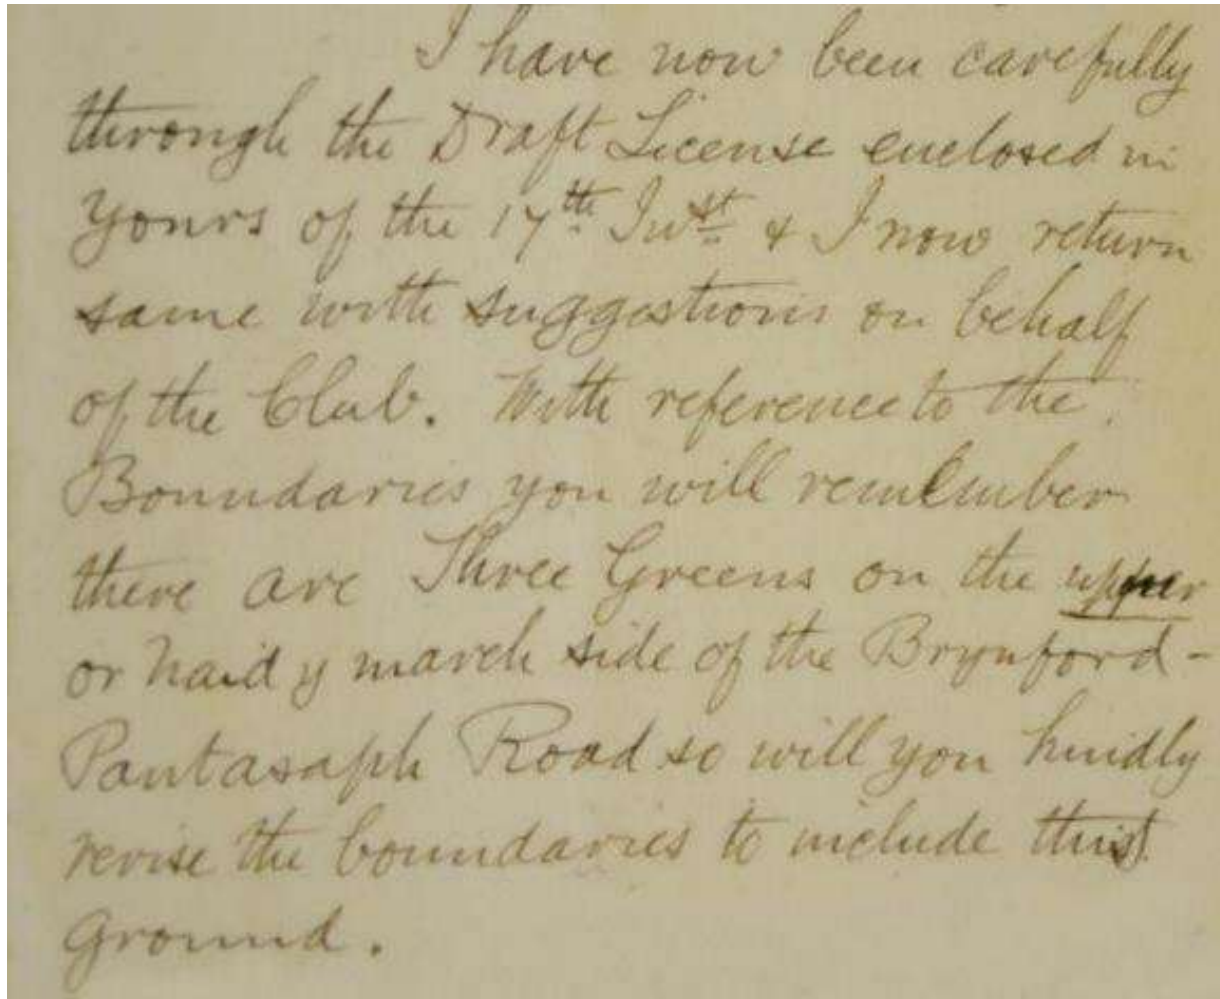 I have now been carefully
through the Draft License enclosed in
yours of the 17th Inst & I now return
same with suggestions on behalf
of the Club. With reference to the
Boundaries you will remember
there are Three Greens on the upper
or Naid y march side of the Brynford-
Pantasaph Road so will you kindly
revise the boundaries to include this
Ground.